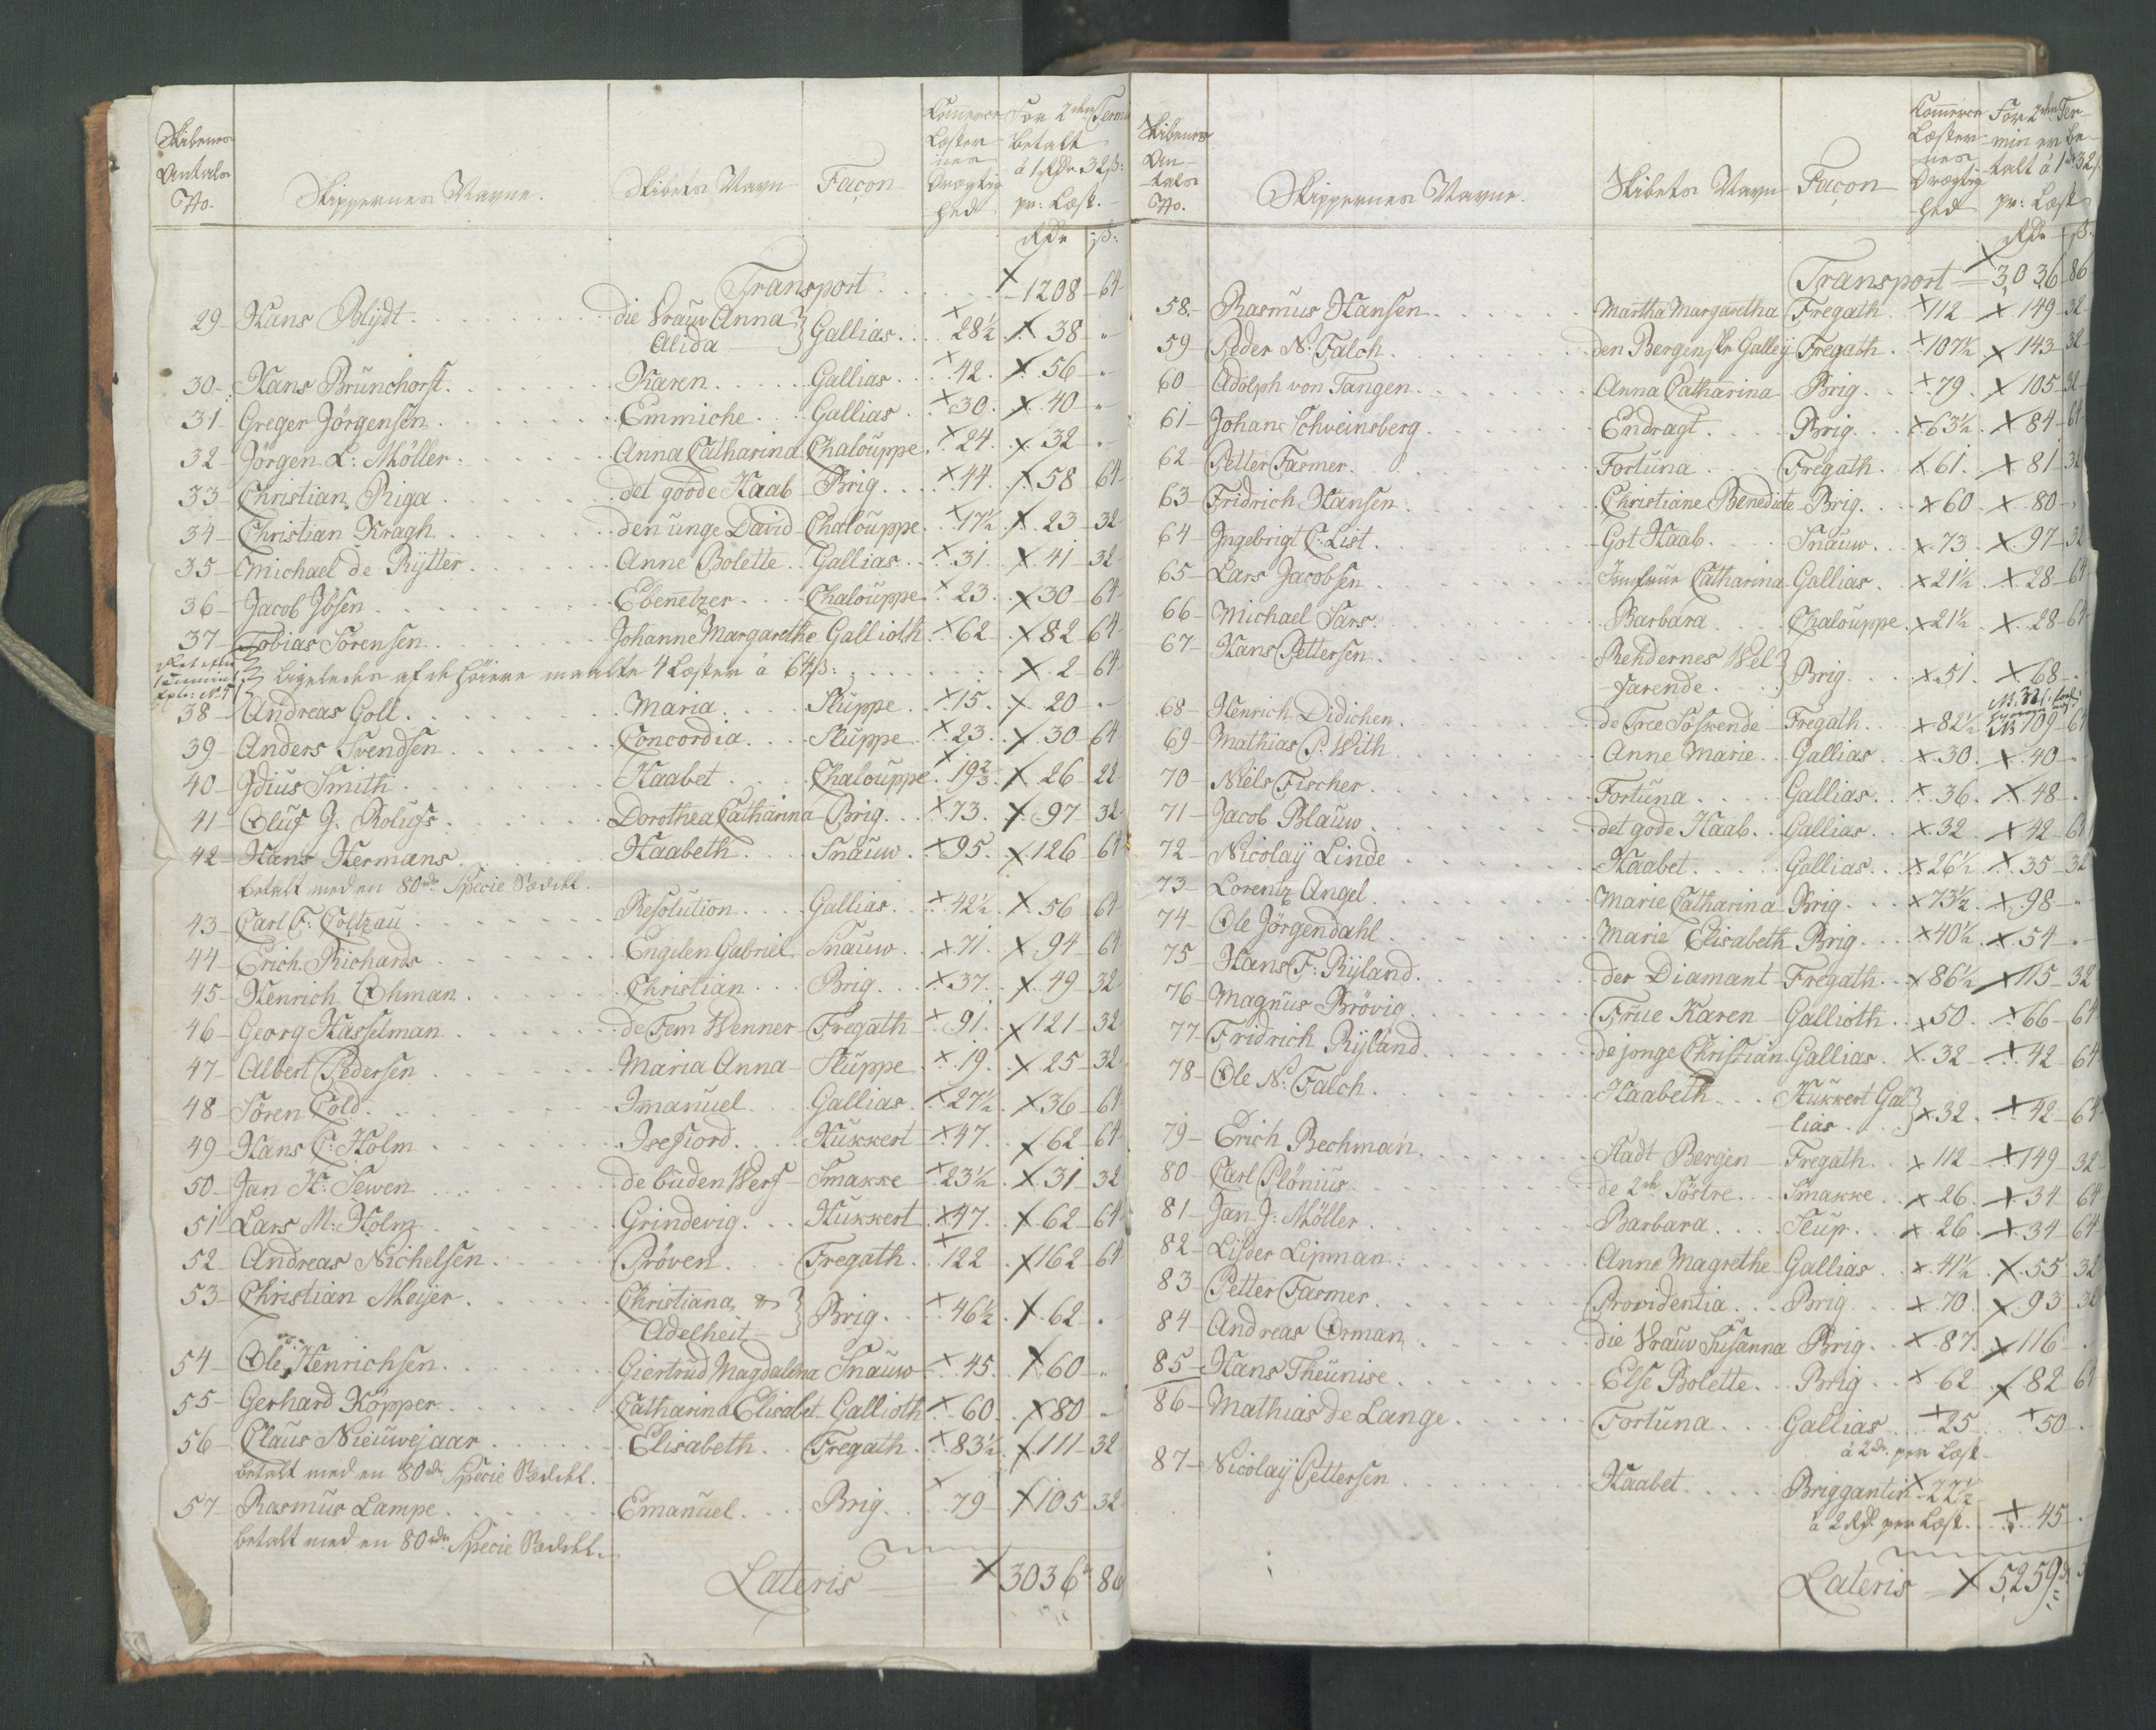 Skibenes Antals No.
Skippernes Navne.
Skibets Navn
Façon
Commerce Læsternes Drægtighed
For 2den Termin betalt à 1 Rdr 32 ß: pr: Læst.
Rdr ß:
Transport . . . 1208 64
29 Hans Blijdt . . . die Vrauw Anna Alida Gallias . . 28½ 38 "
30 Hans Brunchorst . . . Karen . . . Gallias . . 42 . 56 "
31 Greger Jörgensen . . . Emmiche . . Gallias . 30 . 40 "
32 Jörgen L: Möller . . . Anna Catharina Chalouppe . 24 . 32 "
33 Christian Riga . . . det goode Haab Brig . . . 44 . 58 64
34 Christian Kragh . . . den unge David Chalouppe . 17½ . 23 32
35 Michael de Rÿtter . . . Anne Bolette . Gallias . . 31 . 41 32
36 Jacob Ibsen . . . Ebenetzer . . Chalouppe . 23 . 30 64
37 Tobias Sörensen . . . Johanne Margarethe Gallioth . 62 82 64
Ligeledes af de höiere maalte 4 Læster à 64 ß: . . . 2 64
38 Andreas Goll . . . Maria . . . Sluppe . 15 . 20 "
39 Anders Svendsen . . . Concordia . . . Sluppe . 23 . 30 64
40 Idius Smith . . . Haabet . . . Chalouppe . 19⅔ . 26 22
41 Oluf J. Rolufs . . . Dorothea Catharina Brig . . 73 . 97 32
42 Hans Hermans . . . Haabeth . . Snauw . 95 . 126 64
betalt med en 80 rdr Specie Seddel.
43 Carl F: Coltzau . . . Resolution . . . Gallias . 42½ . 56 64
44 Erich Richards . . . Engelen Gabriel Snauw . 71 . 94 64
45 Henrich Öhman . . . Christian . . . Brig . . 37 . 49 32
46 Georg Hasselman . . . de Fem Wenner Fregath . 91 . 121 32
47 Albert Pedersen . . . Maria Anna Sluppe . 19 . 25 32
48 Sören Cold . . . Imanuel . . Gallias . 27½ 36 64
49 Hans C: Holm . . . Isefiord . . . Hukkert . 47 . 62 64
50 Jan H: Sewen . . . de buden Werf Smakke 23½ . 31 32
51 Lars M: Holm . . . Grindevig . . . Hukkert 47 . 62 64
52 Andreas Nichelsen . . . Pröven . . Fregath . 122 162 64
53 Christian Meijer . . . Christiana & Adelheit Brig . . 46½ 62 "
54 Ole Henrichsen . . . Giertrud Magdalena Snauw 45 . 60 "
55 Gerhard Köpper . . . Catharina Elisabet Gallioth 60 . 80 "
56 Claus Nieuwejaar . . . Elisabeth . . Fregath . 83½ . 111 32
betalt med en 80 rdr Specie Seddel.
57 Rasmus Lampe . . . Emanuel . . . Brig . . 79 105 32
betalt med en 80 rdr Specie Seddel.
Lateris 3036 86
Skibenes Antals No.
Skippernes Navne.
Skibets Navn
Façon
Commerce Læsternes Drægtighed
For 2den Termin er betalt à 1 rdr 32 ß pr: Læst
Rdr ß.
Transport 3036 86
58 Rasmus Hansen . . . Martha Margaretha Fregath . 112 149 32
59 Peder N: Falch . . . den Bergenske Galleÿ Fregath . 107½ 143 32
60 Adolph von Tangen . . . Anna Catharina Brig . . 79 . 105 32
61 Johan Schveinsberg . . . Endragt . . Brig . . 63½ . 84 64
62 Petter Farmer . . . Fortuna . . Fregath . 61 . 81 32
63 Fridrich Hansen . . . Christiane Benedicte Brig . . 60 . 80 "
64 Ingebrigt C: List . . . Got Haab . . Snauw . . 73 . 97 32
65 Lars Jacobsen . . . Jomfrue Catharina Gallias . 21½ . 28 64
66 Michael Sars . . . Barbara . . Chalouppe . 21½ . 28 64
67 Hans Pettersen . . . Rehdernes Wel farende . . Brig . . 51 . 68 "
68 Henrich Didichen . . . de Tree Söskende Fregath . . 82½ 109 64
69 Mathias P: With . . . Anne Marie . . Gallias . 30 . 40 "
70 Niels Fischer . . . Fortuna . . . Gallias . . 36 . 48 .
71 Jacob Blauw . . . det gode Haab . . Gallias . . 32 . 42 64
72 Nicolaÿ Linde . . . Haabet . . . Gallias . . 26½ . 35 32
73 Lorentz Angel . . . Marie Catharina Brig . . 73½ . 98 "
74 Ole Jörgendahl . . . Marie Elisabeth Brig . . 40½ . 54 "
75 Hans F: Rÿland . . . der Diamant Fregath . . 86½ 115 32
76 Magnus Brövig . . . Frue Karen Gallioth . 50 . 66 64
77 Fridrich Rÿland . . . de jonge Christian Gallias . 32 . 42 64
78 Ole N: Falch . . . Haabeth . . . Hukkert Gallias . . 32 . 42 64
79 Erich Bechman . . . Stadt Bergen Fregath . . 112 149 32
80 Carl Plönius . . . de 2de Söstre . . Smakke . 26 . 34 64
81 Jan J: Möller . . . Barbara . . . Slup . . 26 . 34 64
82 Lijder Lipman . . . Anne Magrethe Gallias . . 41½ . 55 32
83 Petter Farmer . . . Providentia . . . Brig . . 70 . 93 32
84 Andreas Orman . . . die Vrauw Susanna Brig . . 87 . 116 .
85 Hans Theunise . . . Else Bolette . . Brig . 62 82 64
86 Mathias de Lange . . . Fortuna . . . Gallias . 25 . 50 .
à 2 dr. per Læst
87 Nicolaÿ Pettersen . . . Haabet . . . Briggantin 22½
à 2 Rd. per Læst . . . 45 .
Lateris 5259